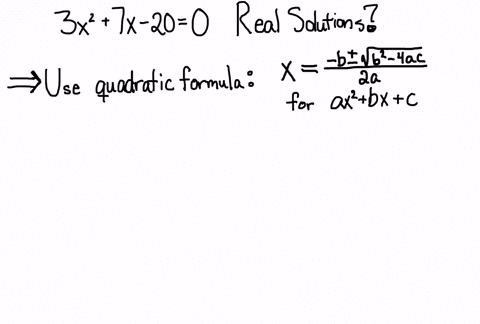 3x² + 7x - 20 = 0 Real Solutions?
⇒ Use quadratic formula: x = (-b ± √(b² - 4ac)) / 2a
for ax² + bx + c